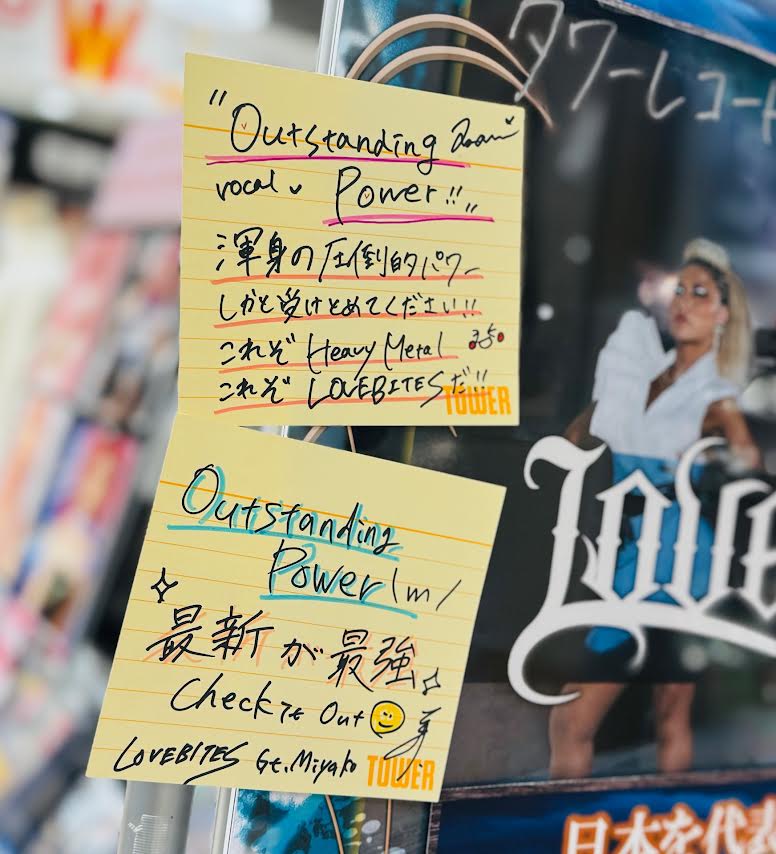 "Outstanding Asami
vocal
Power!!"
渾身の圧倒的パワー
しかと受けとめてください!!
これぞ Heavy Metal
これぞ LOVEBITESだ!!
TOWER
Outstanding
Power \m/
最新が最強
Check it Out
LOVEBITES Gt. Miyako
TOWER
タワーレコード
Love
日本を代表